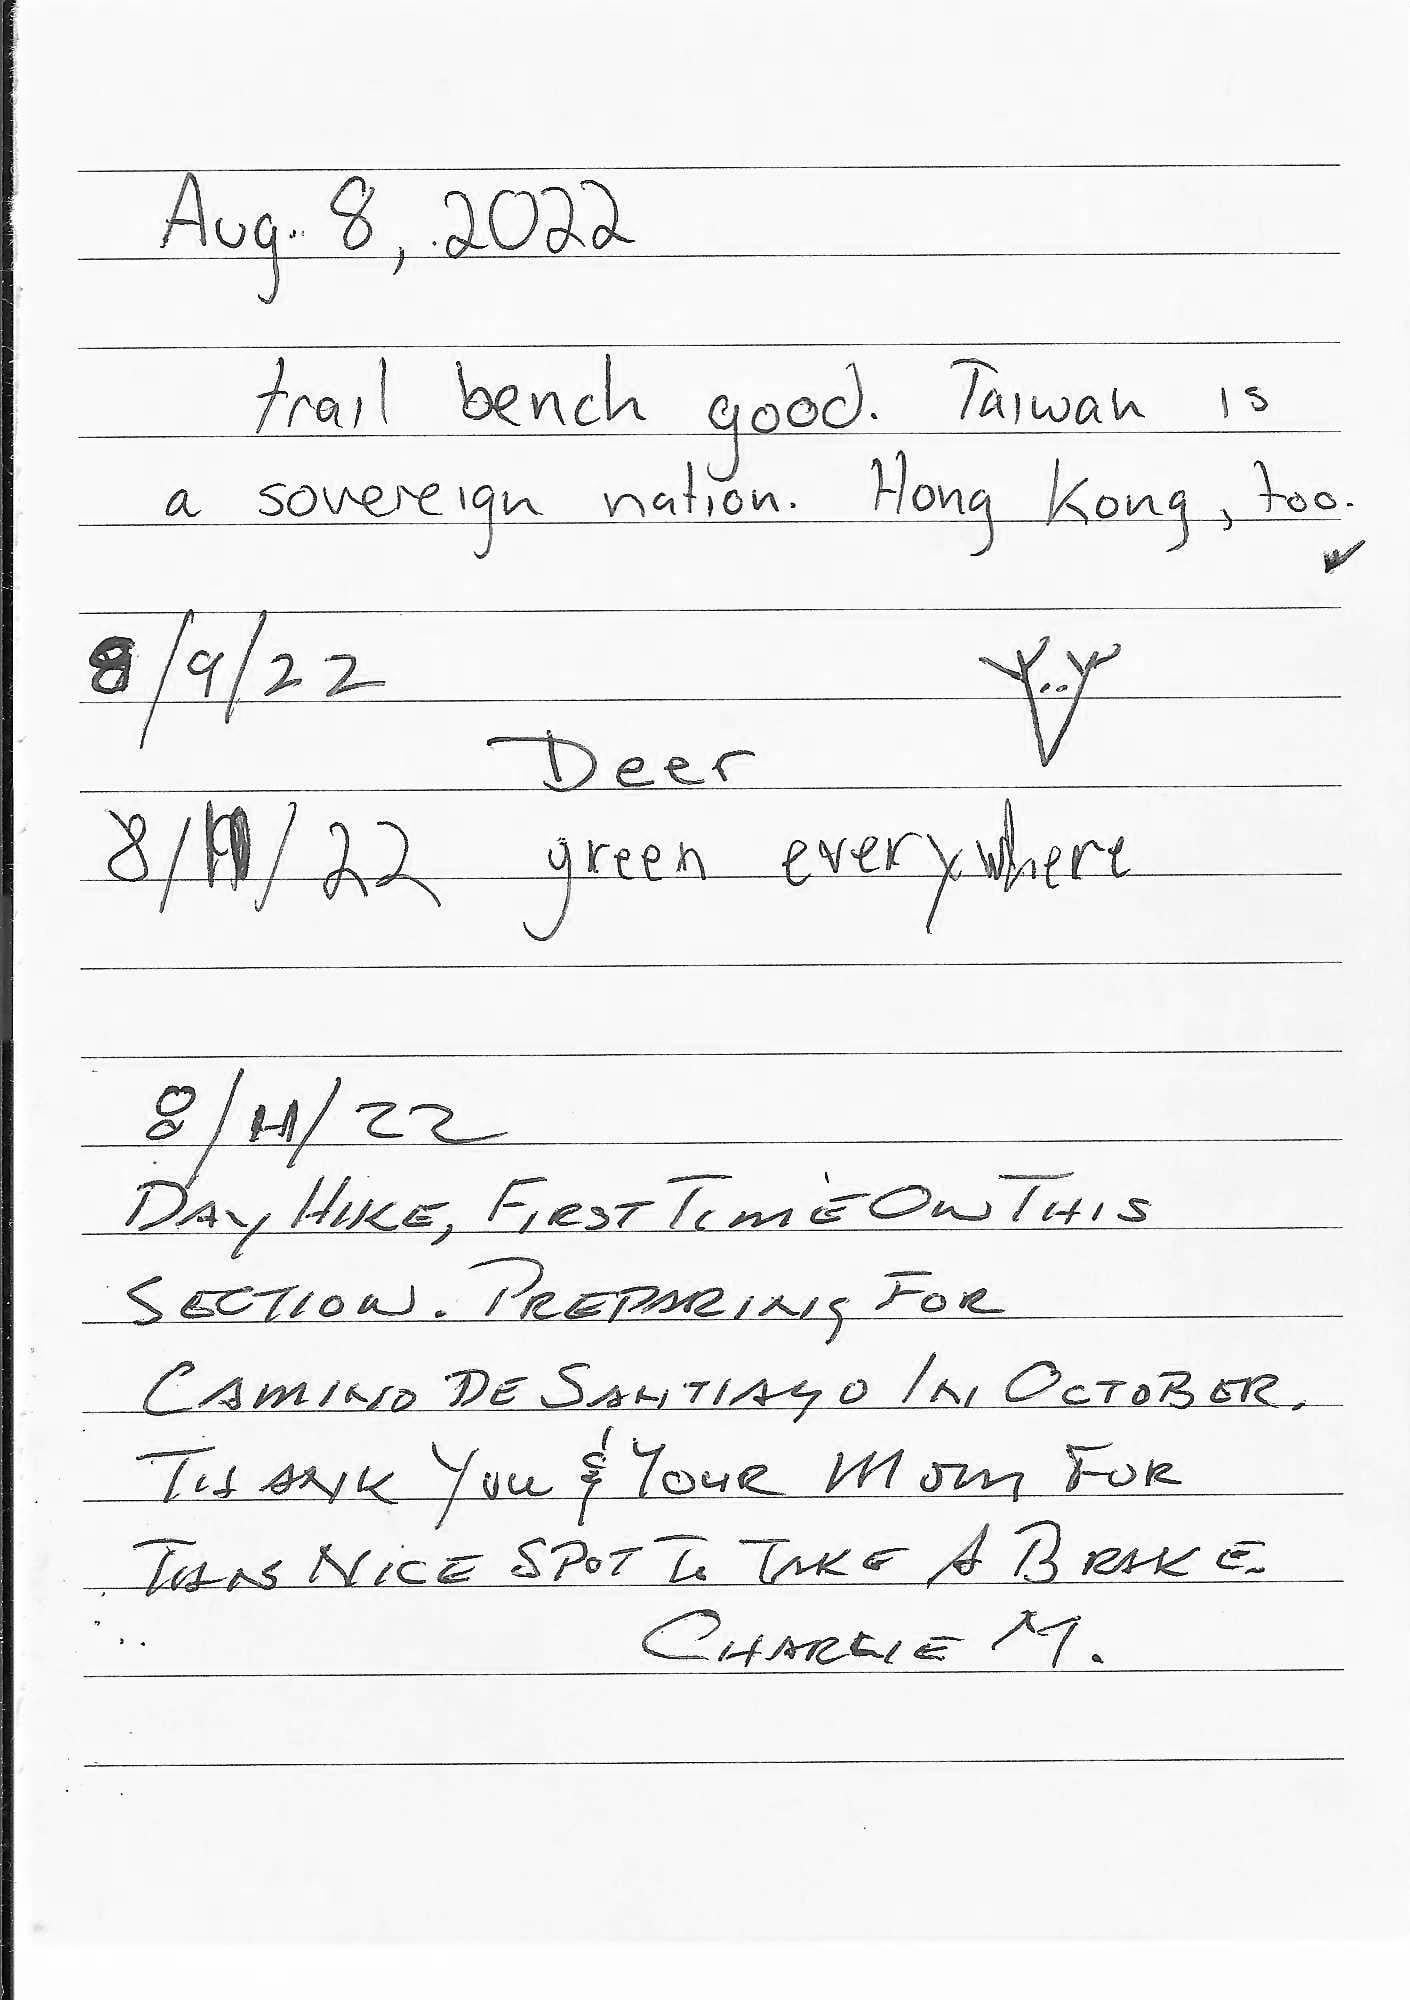 Aug. 8, 2022
trail bench good. Taiwan is
a sovereign nation. Hong Kong, too.
8/9/22
Deer
8/11/22 green everywhere
8/11/22
DAY HIKE, FIRST TIME ON THIS
SECTION. PREPARING FOR
CAMINO DE SANTIAGO IN OCTOBER.
THANK YOU & YOUR MOM FOR
THIS NICE SPOT TO TAKE A BRAKE.
CHARLIE M.